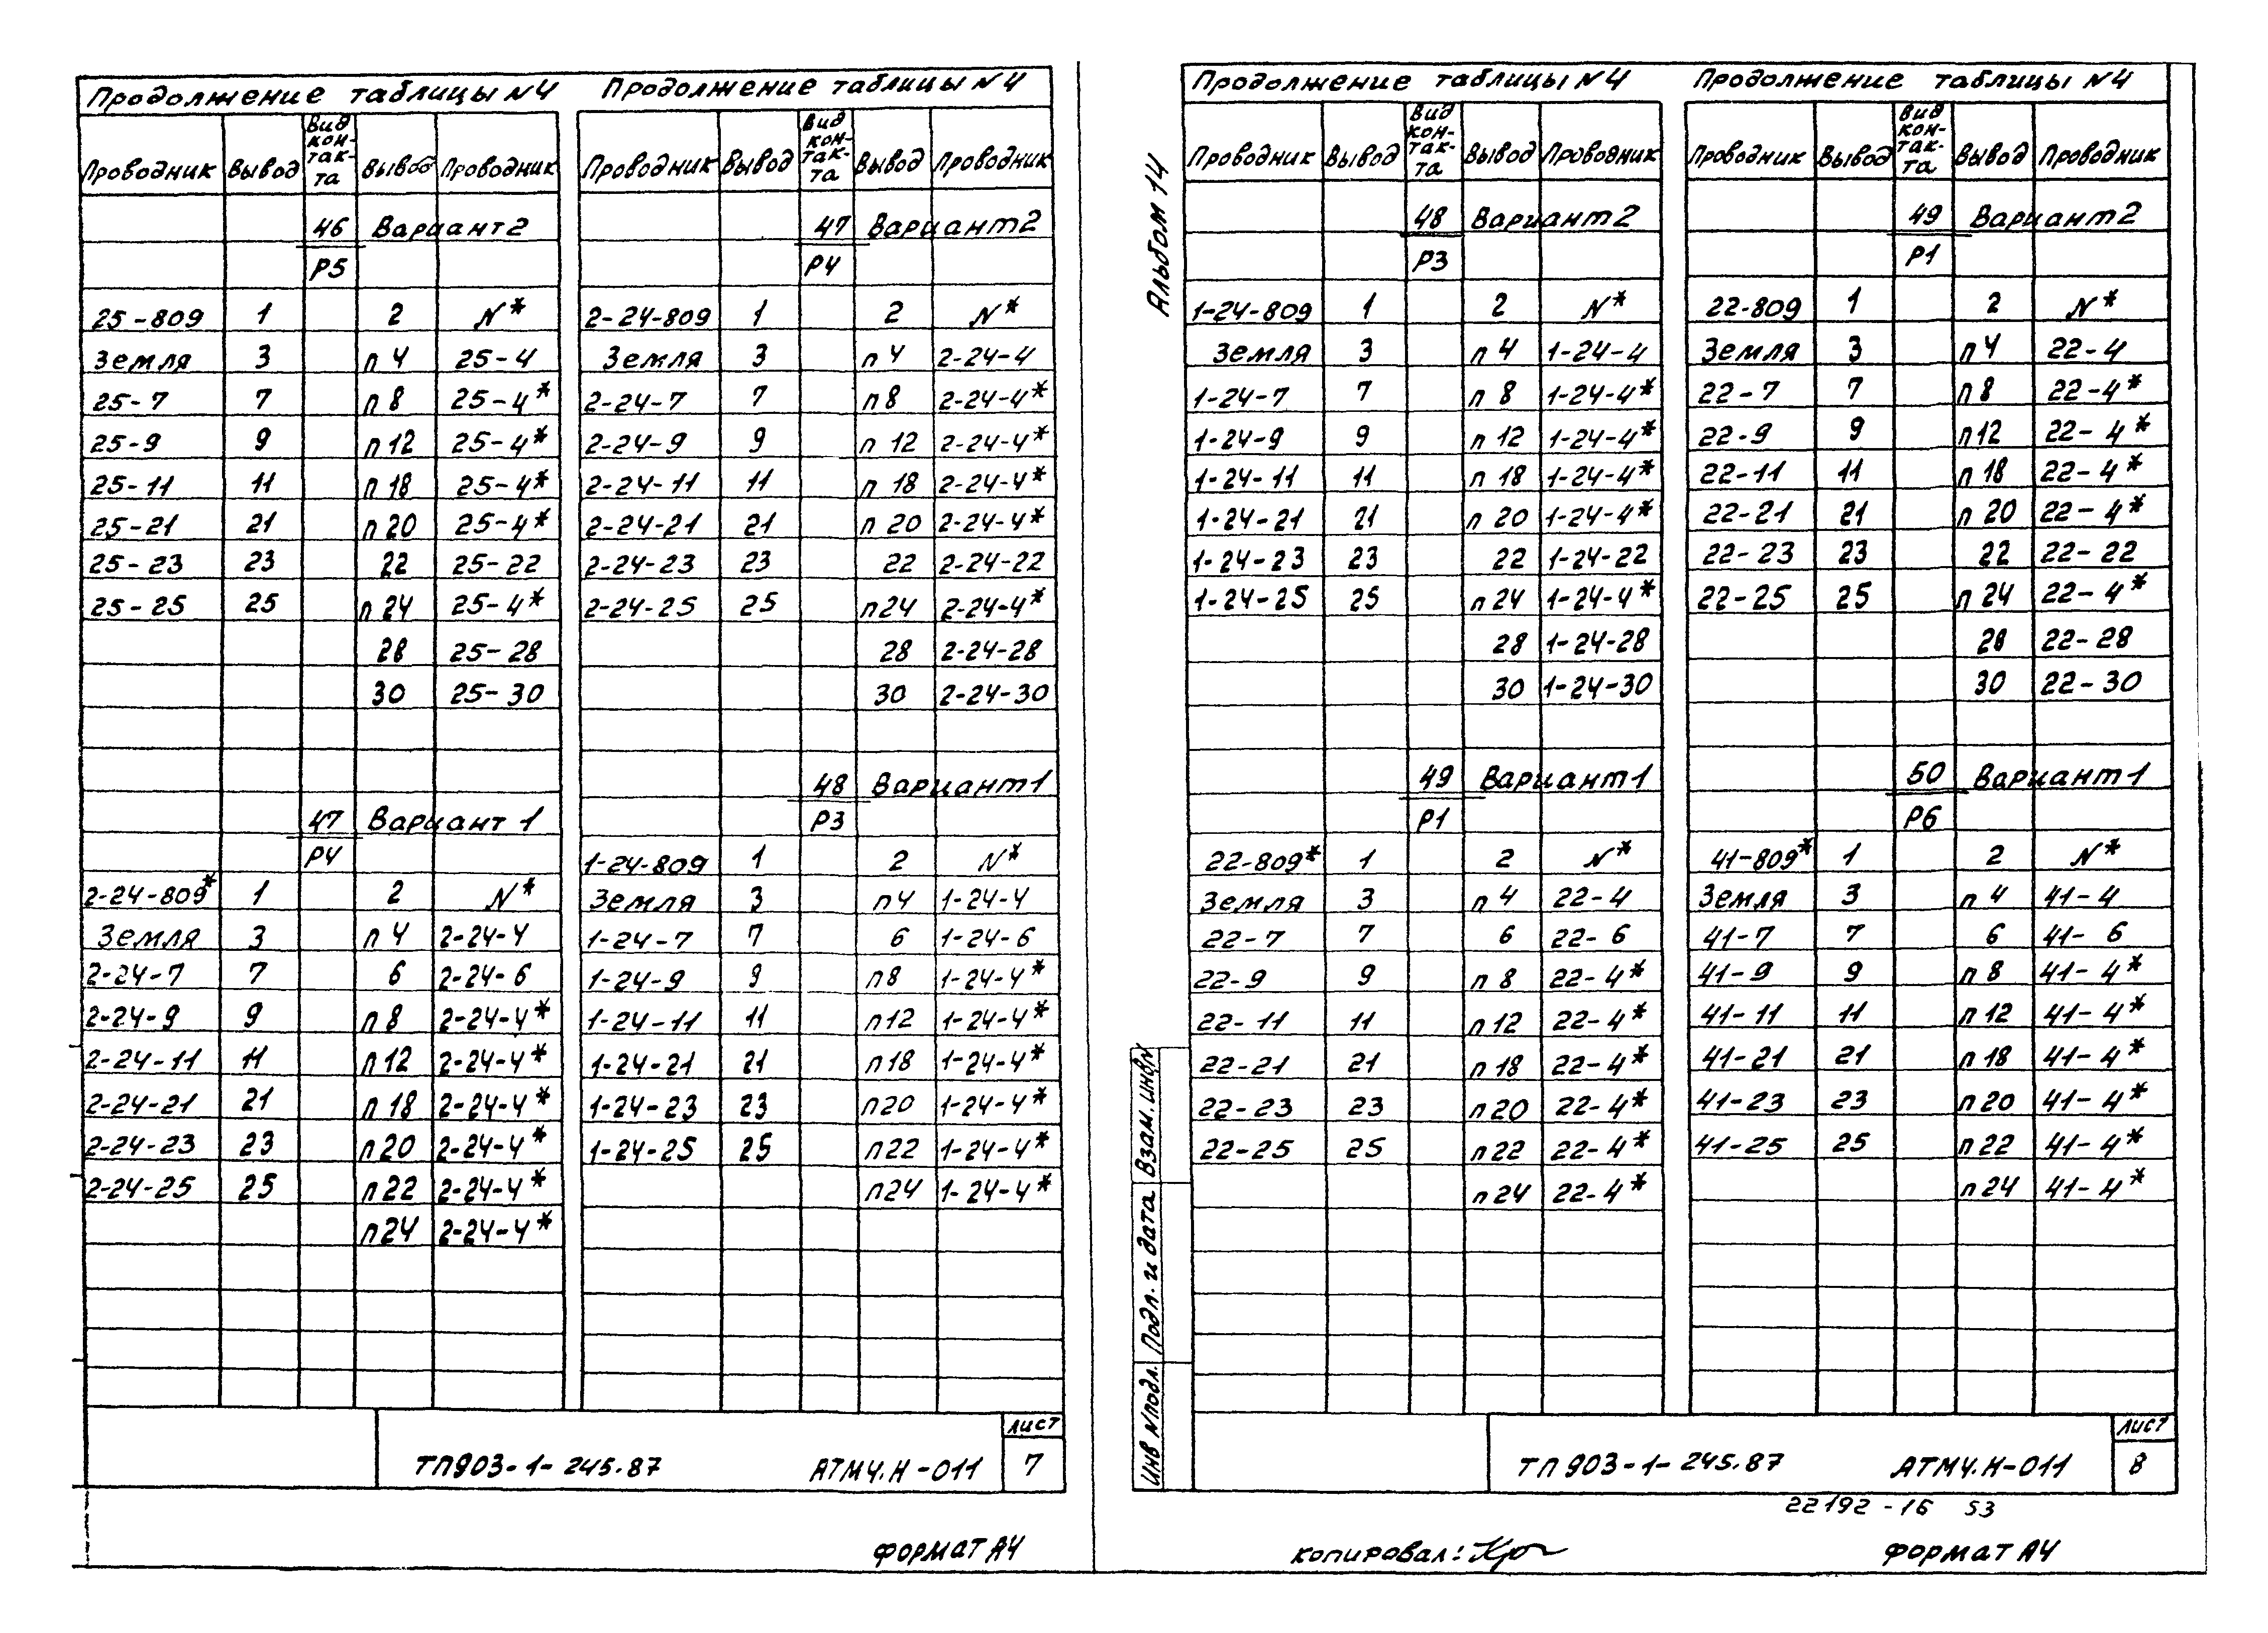 Продолжение таблицы N4
Проводник Вывод Вид кон-так-та Вывод Проводник
46 Вариант2
Р5
25-809 1 2 N*
Земля 3 п4 25-4
25-7 7 п8 25-4*
25-9 9 п12 25-4*
25-11 11 п18 25-4*
25-21 21 п20 25-4*
25-23 23 22 25-22
25-25 25 п24 25-4*
28 25-28
30 25-30
47 Вариант 1
Р4
2-24-809* 1 2 N*
Земля 3 п4 2-24-4
2-24-7 7 6 2-24-6
2-24-9 9 п8 2-24-4*
2-24-11 11 п12 2-24-4*
2-24-21 21 п18 2-24-4*
2-24-23 23 п20 2-24-4*
2-24-25 25 п22 2-24-4*
п24 2-24-4*
Продолжение таблицы N4
Проводник Вывод Вид кон-так-та Вывод Проводник
47 Вариант2
Р4
2-24-809 1 2 N*
Земля 3 п4 2-24-4
2-24-7 7 п8 2-24-4*
2-24-9 9 п12 2-24-4*
2-24-11 11 п18 2-24-4*
2-24-21 21 п20 2-24-4*
2-24-23 23 22 2-24-22
2-24-25 25 п24 2-24-4*
28 2-24-28
30 2-24-30
48 Вариант1
Р3
1-24-809 1 2 N*
Земля 3 п4 1-24-4
1-24-7 7 6 1-24-6
1-24-9 9 п8 1-24-4*
1-24-11 11 п12 1-24-4*
1-24-21 21 п18 1-24-4*
1-24-23 23 п20 1-24-4*
1-24-25 25 п22 1-24-4*
п24 1-24-4*
ТП903-1-245.87 АТМ4.Н-011
Лист
7
Формат А4
Альбом 14
Продолжение таблицы N4
Проводник Вывод Вид кон-так-та Вывод Проводник
48 Вариант2
Р3
1-24-809 1 2 N*
Земля 3 п4 1-24-4
1-24-7 7 п8 1-24-4*
1-24-9 9 п12 1-24-4*
1-24-11 11 п18 1-24-4*
1-24-21 21 п20 1-24-4*
1-24-23 23 22 1-24-22
1-24-25 25 п24 1-24-4*
28 1-24-28
30 1-24-30
49 Вариант1
Р1
22-809* 1 2 N*
Земля 3 п4 22-4
22-7 7 6 22-6
22-9 9 п8 22-4*
22-11 11 п12 22-4*
22-21 21 п18 22-4*
22-23 23 п20 22-4*
22-25 25 п22 22-4*
п24 22-4*
Продолжение таблицы N4
Проводник Вывод Вид кон-так-та Вывод Проводник
49 Вариант2
Р1
22-809 1 2 N*
Земля 3 п4 22-4
22-7 7 п8 22-4*
22-9 9 п12 22-4*
22-11 11 п18 22-4*
22-21 21 п20 22-4*
22-23 23 22 22-22
22-25 25 п24 22-4*
28 22-28
30 22-30
50 Вариант1
Р6
41-809* 1 2 N*
Земля 3 п4 41-4
41-7 7 6 41-6
41-9 9 п8 41-4*
41-11 11 п12 41-4*
41-21 21 п18 41-4*
41-23 23 п20 41-4*
41-25 25 п22 41-4*
п24 41-4*
Инв Nподл. Подл. и дата Взам. инвN
ТП903-1-245.87 АТМ4.Н-011
Лист
8
22192-16 53
Копировал:
Формат А4